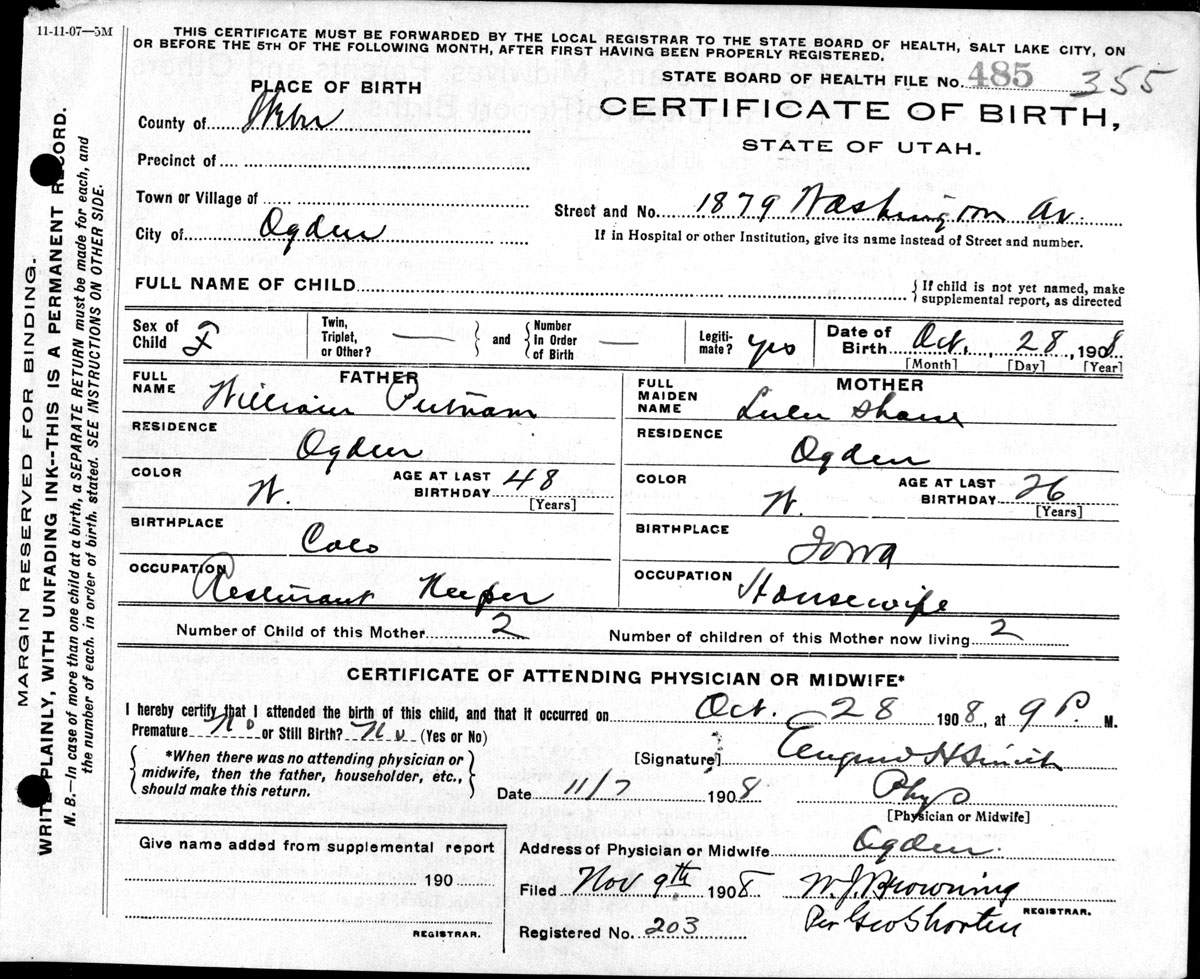 11-11-07—5M
THIS CERTIFICATE MUST BE FORWARDED BY THE LOCAL REGISTRAR TO THE STATE BOARD OF HEALTH, SALT LAKE CITY, ON
OR BEFORE THE 5TH OF THE FOLLOWING MONTH, AFTER FIRST HAVING BEEN PROPERLY REGISTERED.
STATE BOARD OF HEALTH FILE No. 485 355
PLACE OF BIRTH
CERTIFICATE OF BIRTH,
STATE OF UTAH.
County of Weber
Precinct of
Town or Village of
Street and No. 1879 Washington Av.
City of Ogden
If in Hospital or other Institution, give its name instead of Street and number.
FULL NAME OF CHILD
{If child is not yet named, make
supplemental report, as directed
Sex of Child F
Twin, Triplet, or Other? — } and { Number In Order of Birth —
Legiti-mate? yes
Date of Birth Oct. 28, 1908
[Month] [Day] [Year]
FATHER
FULL NAME William Putnam
RESIDENCE Ogden
COLOR W. AGE AT LAST BIRTHDAY 48
[Years]
BIRTHPLACE Colo
OCCUPATION Resturant Keeper
MOTHER
FULL MAIDEN NAME Lulu
RESIDENCE Ogden
COLOR W. AGE AT LAST BIRTHDAY 26
[Years]
BIRTHPLACE Iowa
OCCUPATION Housewife
Number of Child of this Mother 2 Number of children of this Mother now living 2
CERTIFICATE OF ATTENDING PHYSICIAN OR MIDWIFE*
I hereby certify that I attended the birth of this child, and that it occurred on Oct. 28 1908, at 9 P. M.
Premature No or Still Birth? No (Yes or No)
{*When there was no attending physician or
midwife, then the father, householder, etc.,
should make this return.}
[Signature] H Smith
Date 11/7 1908 Phys
[Physician or Midwife]
Give name added from supplemental report
190
REGISTRAR.
Address of Physician or Midwife Ogden.
Filed Nov 9th 1908 W. J. Browning
REGISTRAR.
Registered No. 203 Per Geo Shorten
MARGIN RESERVED FOR BINDING.
WRITE PLAINLY, WITH UNFADING INK--THIS IS A PERMANENT RECORD.
N. B.—In case of more than one child at a birth, a SEPARATE RETURN must be made for each, and
the number of each. in order of birth. stated. SEE INSTRUCTIONS ON OTHER SIDE.